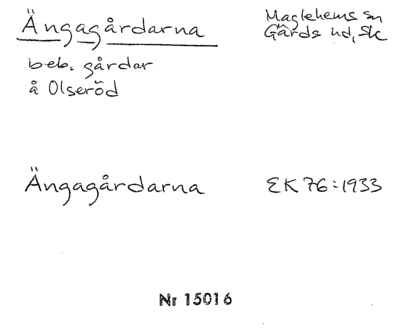 Ängagårdarna
Maglehems sn
Gärds hd, Sk
beb. gårdar
å Olseröd
Ängagårdarna
EK 76:1933
Nr 15016